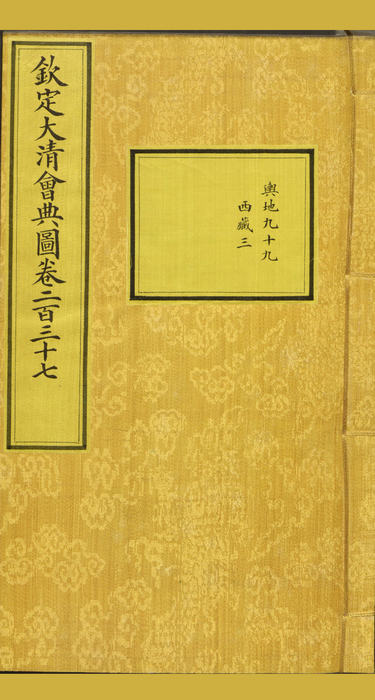 欽定大清會典圖卷二百三十七
輿地九十九
西藏三